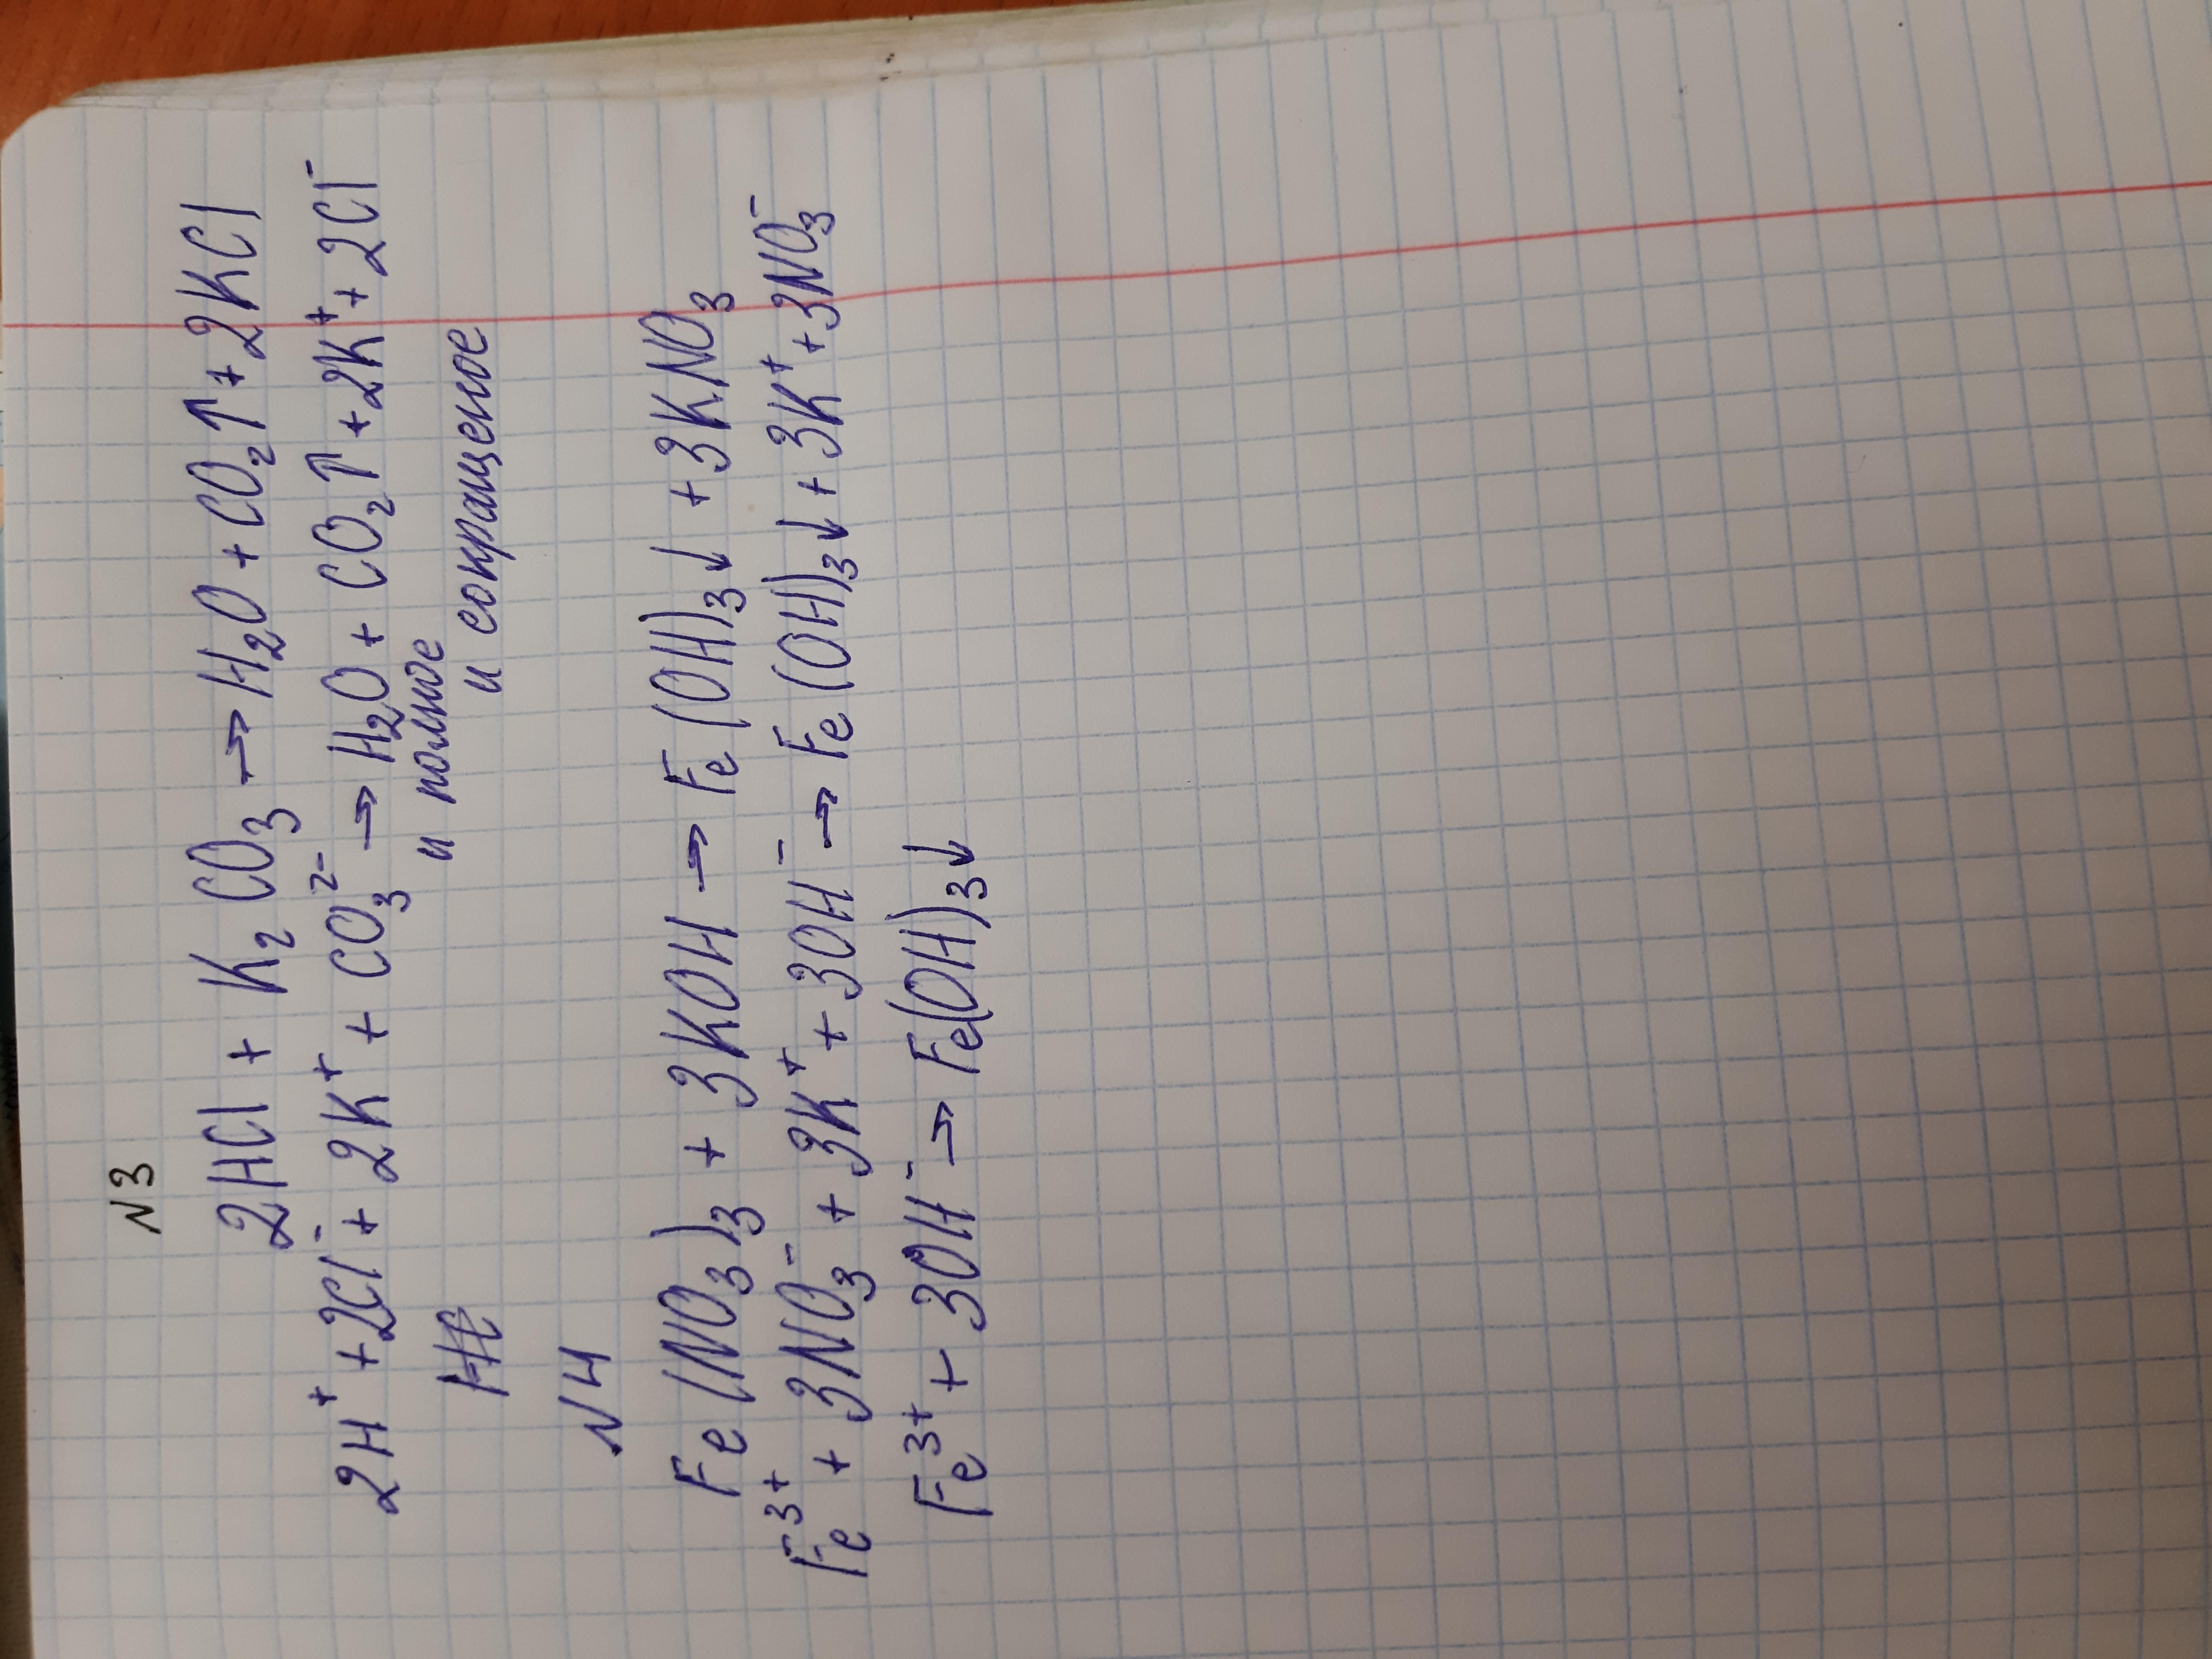 N3
2HCl + K₂CO₃ → H₂O + CO₂↑ + 2KCl
2H⁺ + 2Cl⁻ + 2K⁺ + CO₃²⁻ → H₂O + CO₂↑ + 2K⁺ + 2Cl⁻
и полное
и сокращеное
N4
Fe(NO₃)₃ + 3KOH → Fe(OH)₃↓ + 3KNO₃
Fe³⁺ + 3NO₃⁻ + 3K⁺ + 3OH⁻ → Fe(OH)₃↓ + 3K⁺ + 3NO₃⁻
Fe³⁺ + 3OH⁻ → Fe(OH)₃↓